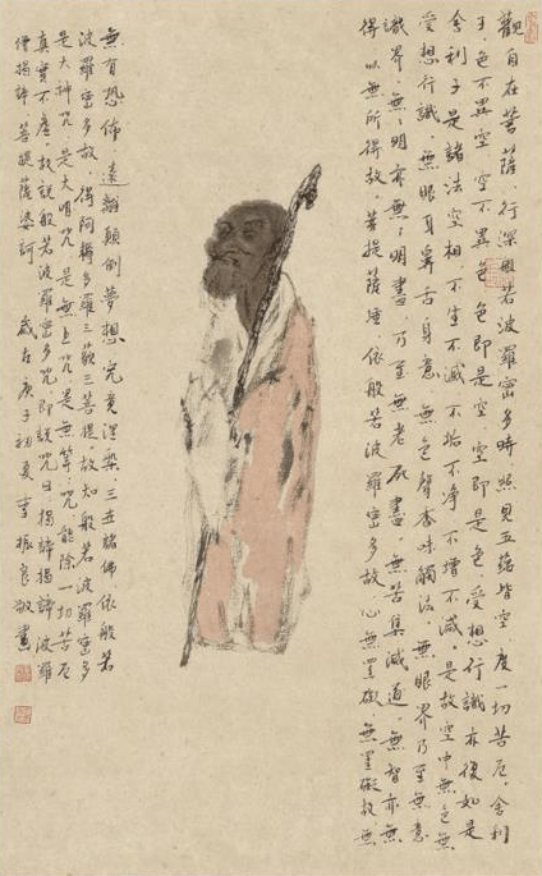 觀自在菩薩、行深般若波羅蜜多時照見五蘊皆空、度一切苦厄、舍利
子、色不異空、空不異色、色即是空、空即是色、受想行識亦復如是
舍利子是諸法空相、不生不滅不垢不净不增不減、是故空中無色無
受想行識、無眼耳鼻舌身意、無色聲香味觸法、無眼界乃至無意
識界、無〻明亦無〻明盡、乃至無老死盡、無苦集滅道、無智亦無
得以無所得故、菩提薩埵、依般若波羅蜜多故心無罣礙、無罣礙故、無
無有恐怖、遠離顛倒夢想、究竟涅槃、三世諸佛、依般若
波羅蜜多故、得阿耨多羅三藐三菩提、故知般若波羅蜜多
是大神咒、是大明咒、是無上咒、是無等〻咒、能除一切苦厄
真實不虛、故說般若波羅蜜多咒即說咒曰揭諦揭諦波羅
僧揭諦 菩提薩婆訶 歲在庚子初夏李振良敬畫